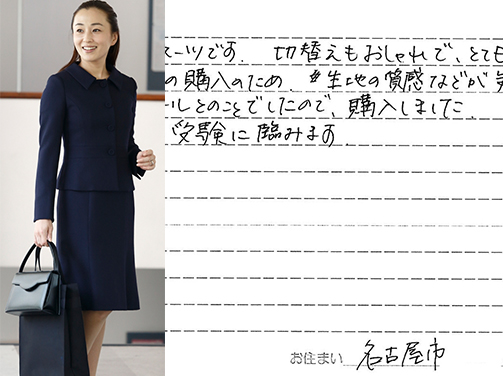 スーツです. 切替えもおしゃれで、とても
の購入のため. 生地の質感などが
ールとのことでしたので、購入しました.
受験に臨みます.
お住まい 名古屋市